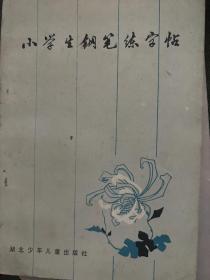 小学生钢笔练字帖
湖北少年儿童出版社